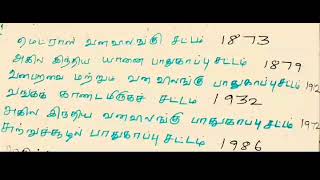 மெட்ராஸ் வனவிலங்கு சட்டம் 1873
அகில இந்திய யானை பாதுகாப்பு சட்டம் 1879
வனபறவை மற்றும் வனவிலங்கு பாதுகாப்பு சட்டம் 1912
வங்கக் காண்டாமிருகச் சட்டம் 1932
அகில இந்திய வனவிலங்கு பாதுகாப்பு சட்டம் 1972
சுற்றுச்சூழல் பாதுகாப்பு சட்டம் 1986